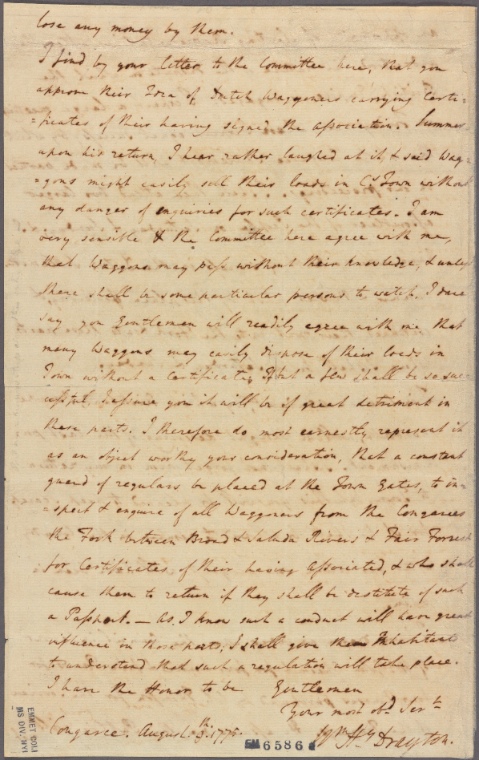 lose any money by them.
I find by your letter to the Committee here, that you
approve their Idea of Dutch Waggoners carrying Certi-
=ficates of their having signed the association. Summer
upon his return, I hear rather laughed at it, & said Wag-
=gons might easily sell their loads in Cs Town without
any danger of enquiries for such certificates. I am
very sensible & the Committee here agree with me,
that Waggons may pass without their knowledge, & unless
there shall be some particular persons to watch. I dare
say you Gentlemen will readily agree with me that
many Waggons may easily dispose of their loads in
Town without a Certificate, & if but a few shall be so suc-
cessful, I assure you it will be of great detriment in
these parts. I therefore do most earnestly represent it
as an object worthy your consideration, that a constant
guard of regulars be placed at the Town Gates, to in-
=spect & enquire of all Waggoners from the Congarees
the Fork between Broad & Saluda Rivers & Fair Forrest
for Certificates of their having associated, & who shall
cause them to return if they shall be destitute of such
a Passport. — As, I know such a conduct will have great
influence in those parts, I shall give the Inhabitants
to understand that such a regulation will take place.
I have the Honor to be Gentlemen
Your most obd. Servts
Congaree August 1775. Wm Hy Drayton.
EMMET COLL
MS DIV. NY
EM 6586